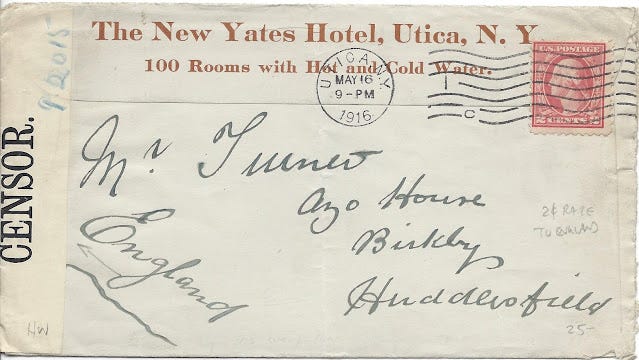 The New Yates Hotel, Utica, N. Y.
100 Rooms with Hot and Cold Water.
UTICA, N.Y.
MAY 16
9-PM
1916
1
C
U.S. POSTAGE
2 CENTS 2
CENSOR.
P 2015
Mr. Turner
Azo House
Birkby
Huddersfield
England
2¢ RATE
TO ENGLAND
HW
25-